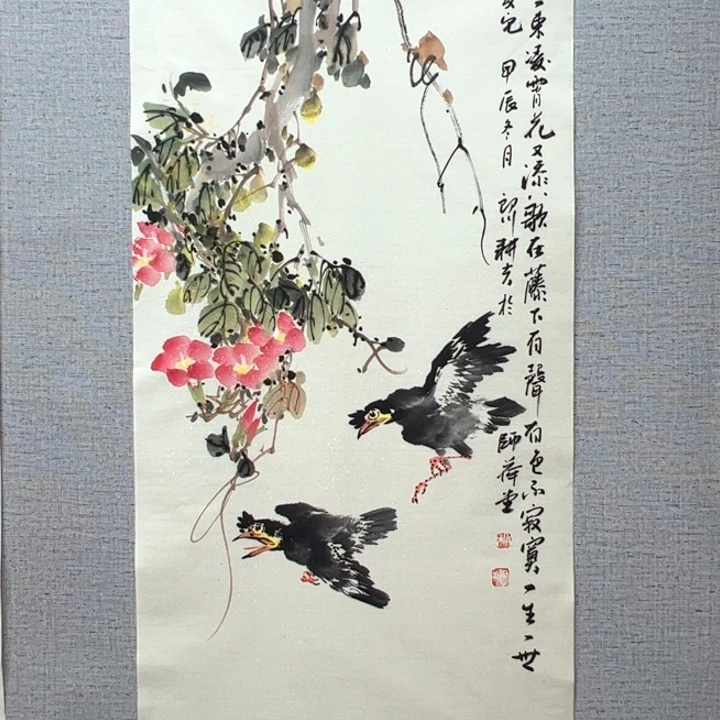 一束凌霄花又添八歌在藤下有聲有色不寂寞一生一世
甲辰冬月 耕夫於
師堂